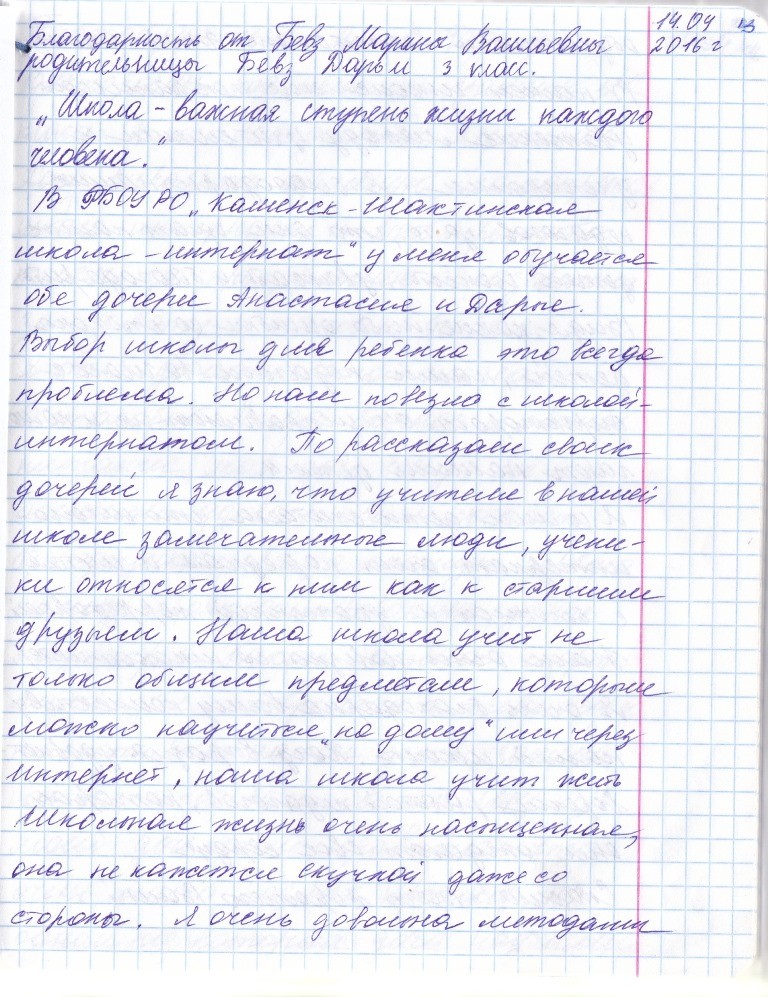 14.04 13
Благодарность от Бевз Марины Васильевны 2016 г
родительницы Бевз Дарьи 3 класс.
„Школа – важная ступень жизни каждого
человека."
В ГБОУ РО „Каменск-Шахтинская
школа-интернат" у меня обучается
обе дочери Анастасия и Дарья.
Выбор школы для ребенка это всегда
проблема. Но нам повезло с школой-
интернатом. По рассказам своих
дочерей я знаю, что учителя в нашей
школе замечательные люди, учени-
ки относятся к ним как к старшим
друзьям. Наша школа учит не
только общим предметам, которым
можно научиться „на дому" или через
интернет, наша школа учит жить
Школьная жизнь очень насыщенная,
она не кажется скучной даже со
стороны. Я очень довольна методами